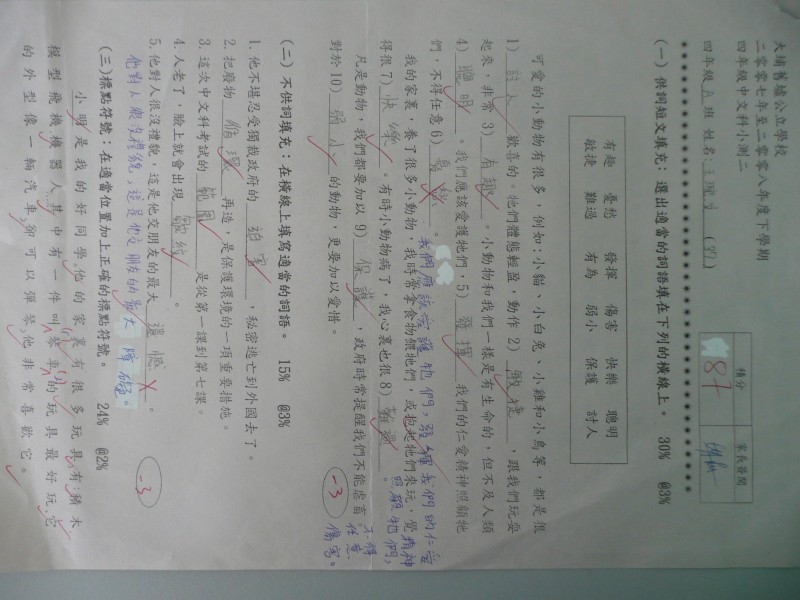 大埔舊墟公立學校
二零零七年至二零零八年度下學期
四年級中文科小測二
四年級 A 班 姓名: (37)
積分 家長簽閱
84
(一) 供詞短文填充：選出適當的詞語填在下列的橫線上。 30% @3%
有趣 憂愁 發揮 傷害 快樂 聰明
敏捷 難過 有為 弱小 保護 討人
可愛的小動物有很多，例如：小貓、小白兔、小雞和小鳥等，都是很
1) 討人 歡喜的。牠們體態輕盈，動作 2) 敏捷 ，跟我們玩耍
起來，非常 3) 有趣 。小動物和我們一樣是有生命的，但不及人類
4) 聰明 。我們應該愛護牠們；5) 發揮 我們的仁愛精神照顧牠
們，不得任意 6) 憂愁 。
我們應該愛護牠們，發揮我們的仁愛精神照顧牠們，不得任意傷害。
我的家裏，養了很多小動物，我時常拿食物餵牠們，或抱起牠們來玩，覺
得很 7) 快樂 。有時小動物病了，我心裏也很 8) 難過 。
凡是動物，我們都要加以 9) 保護 ，政府時常提醒我們不能虐畜。
對於 10) 弱小 的動物，更要加以愛惜。
-3
(二) 不供詞填充：在橫線上填寫適當的詞語。 15% @3%
1. 他不堪忍受獨裁政府的 迫害 ，秘密逃亡到外國去了。
2. 把廢物 循環 再造，是保護環境的一項重要措施。
3. 這次中文科考試的 範圍 是從第一課到第七課。
4. 人老了，臉上就會出現 皺紋 。
5. 他對人很沒禮貌，這是他交朋友的最大 遺憾 。
他對人很沒禮貌，這是他交朋友的最大障礙。
-3
(三) 標點符號：在適當位置加上正確的標點符號。 24% @2%
小明是我的好同學他的家裏有很多玩具，有積木
模型飛機機器人其中有一件叫琴車的玩具最好玩，它
的外型像一輛汽車，卻可以彈琴，他非常喜歡它。